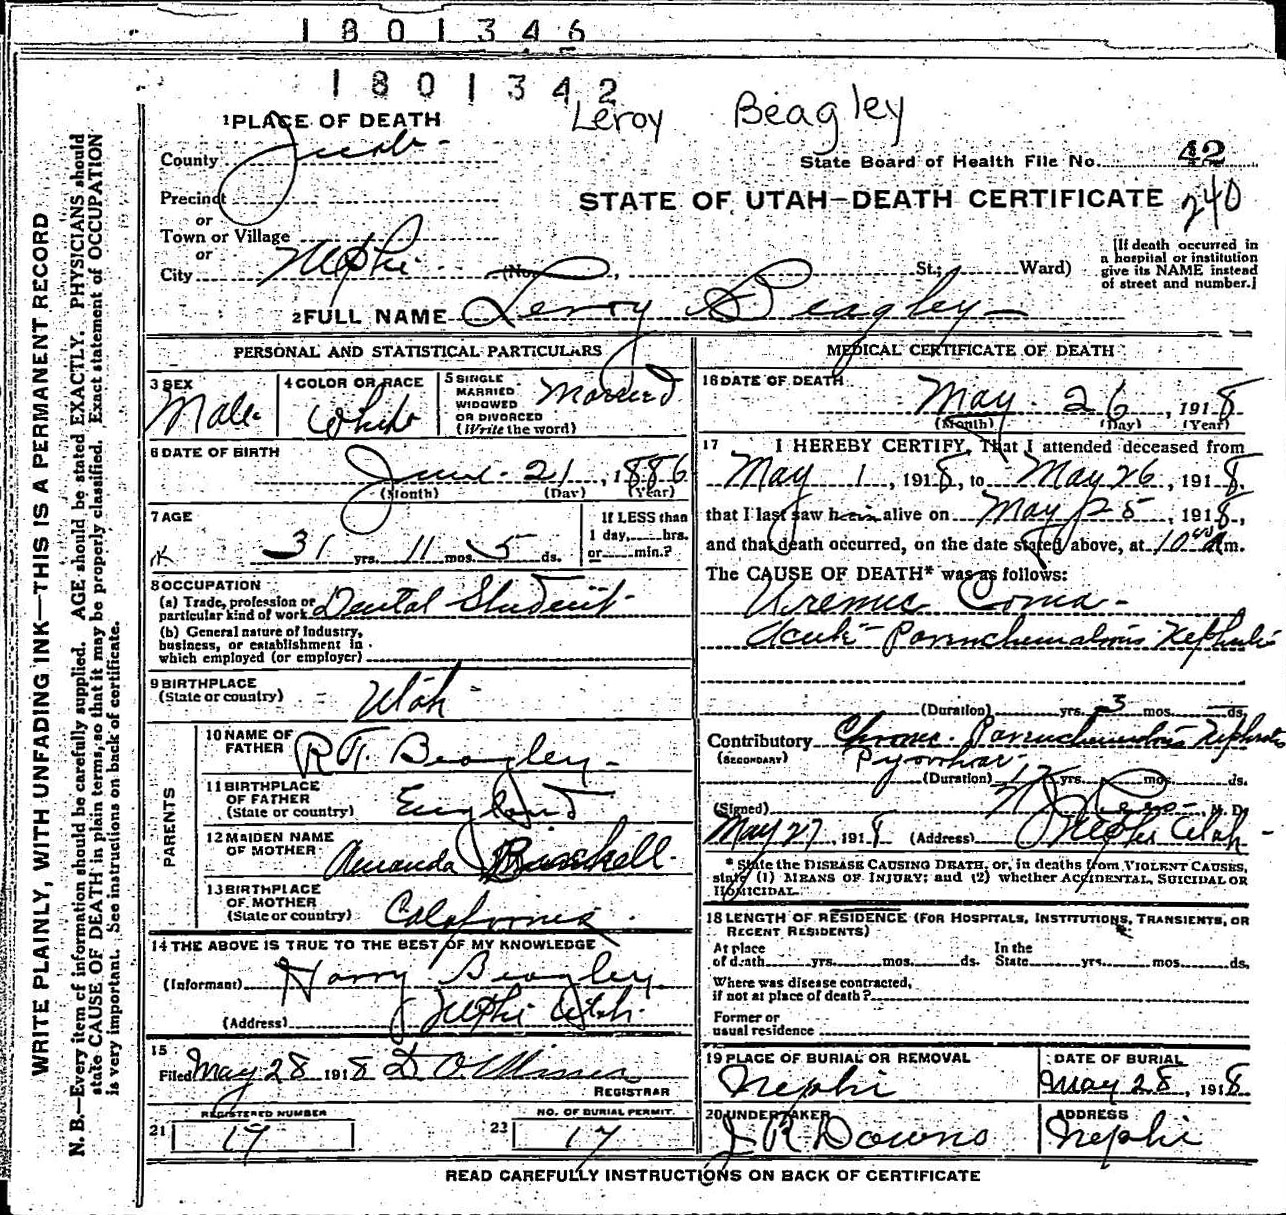 1801346
1801342
Leroy Beagley
1 PLACE OF DEATH
County Juab
State Board of Health File No. 42
Precinct
240
STATE OF UTAH—DEATH CERTIFICATE
or
Town or Village
or
City Nephi (No. , St.; Ward)
[If death occurred in
a hospital or institution
give its NAME instead
of street and number.]
2 FULL NAME Leroy Beagley
PERSONAL AND STATISTICAL PARTICULARS
3 SEX
Male
4 COLOR OR RACE
White
5 SINGLE
MARRIED
WIDOWED
OR DIVORCED
(Write the word)
Married
6 DATE OF BIRTH
June 21, 1886
(Month) (Day) (Year)
7 AGE
31 yrs. 11 mos. 5 ds.
If LESS than
1 day, hrs.
or min.?
8 OCCUPATION
(a) Trade, profession or
particular kind of work Dental Student
(b) General nature of Industry,
business, or establishment in
which employed (or employer)
9 BIRTHPLACE
(State or country) Utah
PARENTS
10 NAME OF
FATHER R T. Beagley
11 BIRTHPLACE
OF FATHER
(State or country) England
12 MAIDEN NAME
OF MOTHER Amanda
13 BIRTHPLACE
OF MOTHER
(State or country) California
14 THE ABOVE IS TRUE TO THE BEST OF MY KNOWLEDGE
(Informant) Harry Beagley
(Address) Nephi Utah
15
Filed May 28 1918 D O Miner
REGISTRAR
REGISTERED NUMBER
21 17
NO. OF BURIAL PERMIT.
23 17
MEDICAL CERTIFICATE OF DEATH
16 DATE OF DEATH
May 26, 1918
(Month) (Day) (Year)
17 I HEREBY CERTIFY, That I attended deceased from
May 1, 1918, to May 26, 1918,
that I last saw him alive on May 25, 1918,
and that death occurred, on the date stated above, at 10 am.
The CAUSE OF DEATH* was as follows:
Uremic Coma
Acute Parenchematous Nephritis
(Duration) yrs. 3 mos. ds.
Contributory Chronic Parenchematous Nephritis
(SECONDARY) Pyorrhea
(Duration) yrs. mos. ds.
(Signed) M. D.
May 27, 1918 (Address) Nephi Utah
* State the DISEASE CAUSING DEATH, or, in deaths from VIOLENT CAUSES,
state (1) MEANS OF INJURY; and (2) whether ACCIDENTAL, SUICIDAL OR
HOMICIDAL.
18 LENGTH OF RESIDENCE (FOR HOSPITALS, INSTITUTIONS, TRANSIENTS, OR
RECENT RESIDENTS)
At place
of death yrs. mos. ds.
In the
State yrs. mos. ds.
Where was disease contracted,
if not at place of death?
Former or
usual residence
19 PLACE OF BURIAL OR REMOVAL
Nephi
DATE OF BURIAL
May 28, 1918
20 UNDERTAKER
J R Downs
ADDRESS
Nephi
READ CAREFULLY INSTRUCTIONS ON BACK OF CERTIFICATE
WRITE PLAINLY, WITH UNFADING INK—THIS IS A PERMANENT RECORD
N. B.—Every item of information should be carefully supplied. AGE should be stated EXACTLY. PHYSICIANS should
state CAUSE OF DEATH in plain terms, so that it may be properly classified. Exact statement of OCCUPATION
is very important. See instructions on back of certificate.